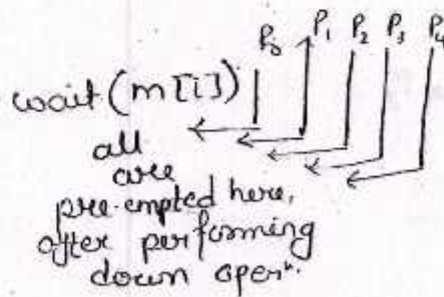 P₀ P₁ P₂ P₃ P₄
wait (m[i])
all
are
pre-empted here,
after performing
down operⁿ.